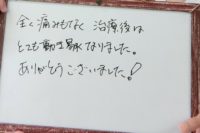 全く痛みもなく 治療後は
とても動き易くなりました。
ありがとうございました!